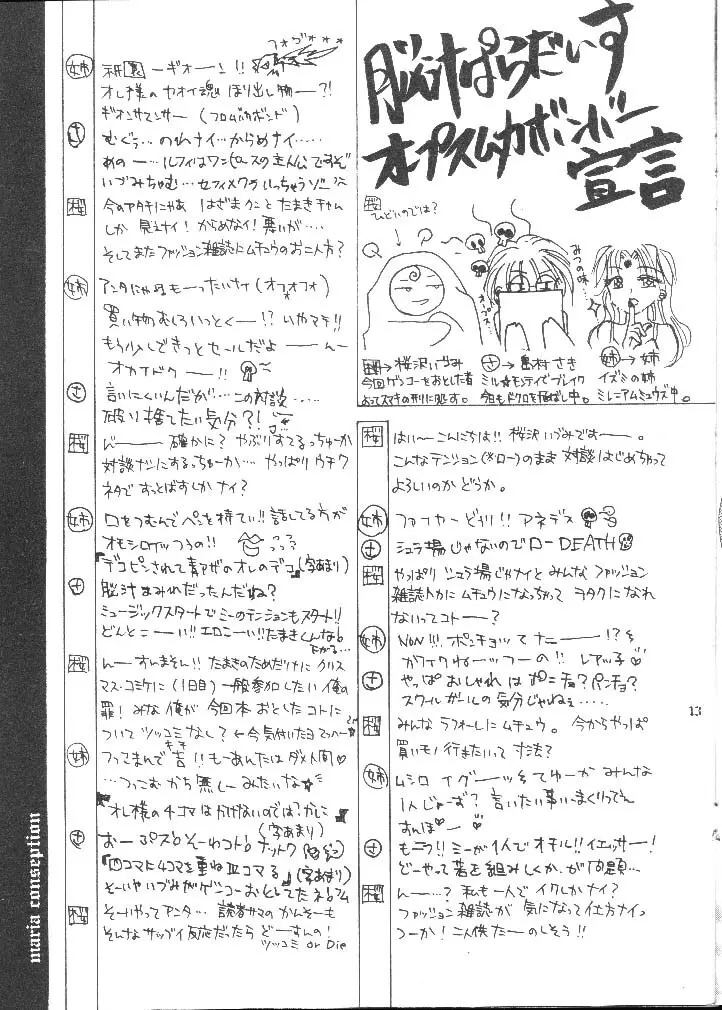 脳汁ぱらだいす
オプスムカボンバー
宣言
桜
ひどいのでは?
みつの味…
桜→桜沢いづみ
今回ゲンコーをおとした者
よってスマキの刑に処す。
さ→島村さき
ミル★モンティでブレイク
今日もドクロを飛ばし中。
姉→姉
イズミの姉
ミレニアムミュウズ中。
桜 はいーこんにちは!! 桜沢いづみですー。
こんなテンション(※ロー)のまま 対談はじめちゃって
よろしいのか どうか。
姉 ファイヤーどりり!! アネデス
さ シュラ場じゃないのでローDEATH
桜 やっぱり シュラ場じゃナイと みんな ファッション
雑誌トカに ムチュウになっちゃって ヲタクに なれ
ないってコトー?
姉 NON!!! ポンチョッて ナニー!?
カワイクねーっつーの!! レアッ子♡
さ やっぱ おしゃれは ポンチョ? パンチョ?
スクールガールの 気分じゃねぇ……
桜 みんな ラフォーレに ムチュウ。 今からやっぱ
買いモノ行きたいって寸法?
姉 ムシロ イグーッ そてゆーか みんな
1人じゃーず? 言いたい事いいまくりってん
すんぽー♡
さ もニラ!! ミーが1人でオチル!! イエッサー!
どーやって 薯を組みしくか、が問題…
桜 んー…? 私も一人で イクしかナイ?
ファッション雑誌が 気になって仕方ナイっ
つーか! 二人供 たーのしそう!!
13
姉 祇園ーギオーン!!
フォヴォ***
オレ様の ヤオイ魂 ほり出し物ー?!
ギオンサマンサー (フロムバカボンド)
さ むぐぅ… のれナイ…からめナイ……
あのー…ルフィはワンピースの主人公ですぞ
いづみちゃむ… セフィメクラいっちゃうゾー
桜 今のアタチにゃあ はざまクンと たまきチャム
しか 見えナイ! からめなイ! 悪いが…
そしてまたファッション雑誌にムチュウのお二人方?
姉 アンタにゃぁもーったいナイ (オフォオフォ)
買い物むしろいっとくー!? いやマテ!!
もう少しで きっと セールだよーんー
オカイドクー!!
さ 言いにくいんだが… この対談……
破り捨てたい気分?!
桜 んー 確かに? やぶりすてるっちゅーか
対談ナシにするっちゅーか… やっぱり ウチワ
ネタで すっとばすしか ナイ?
姉 口をつむんでペンを持てい!! 話してる方が
オモシロイッつうの!!
『デコピンされて青アザのオレのデコ』(字あまり)
さ 脳汁まみれだったんだね?
ミュージックスタートでミーのテンションもスタート!!
どんとこーい!! エロこーい!! たまきくんなら
桜 んーすいません!! たまきのためだけに クリス
マス・コミケに (1日目) 一般参加したい 俺の
罪! みな 俺が 今回本 おとしたコトに
ついて ツッコミなし? ←今気付いたヨ
姉 つってまんで吉!! もーあんたは ダメ人間♡
…つっこむ から 無しーみたいな
『オレ様の4コマはかけないのでは?かしこ』
(字あまり)
さ おーぷす! そーわコト! ナットク
『四コマに4コマを重ね皿コマる』(字あまり)
そーいやいづみがゲンコーおとしてたネ!
桜 そーいやってアンタ… 読者サマの かんそーも
そんなサッブイ反応だったら どーすんの!
ツッコミ or Die
maria conseption